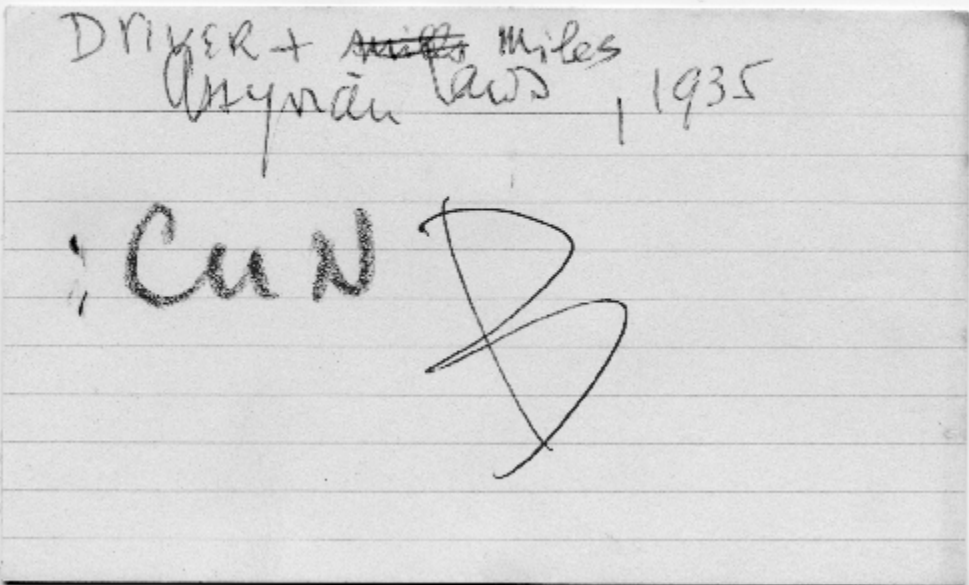 DRIVER + miles
Assyrian Laws, 1935
: CuN B